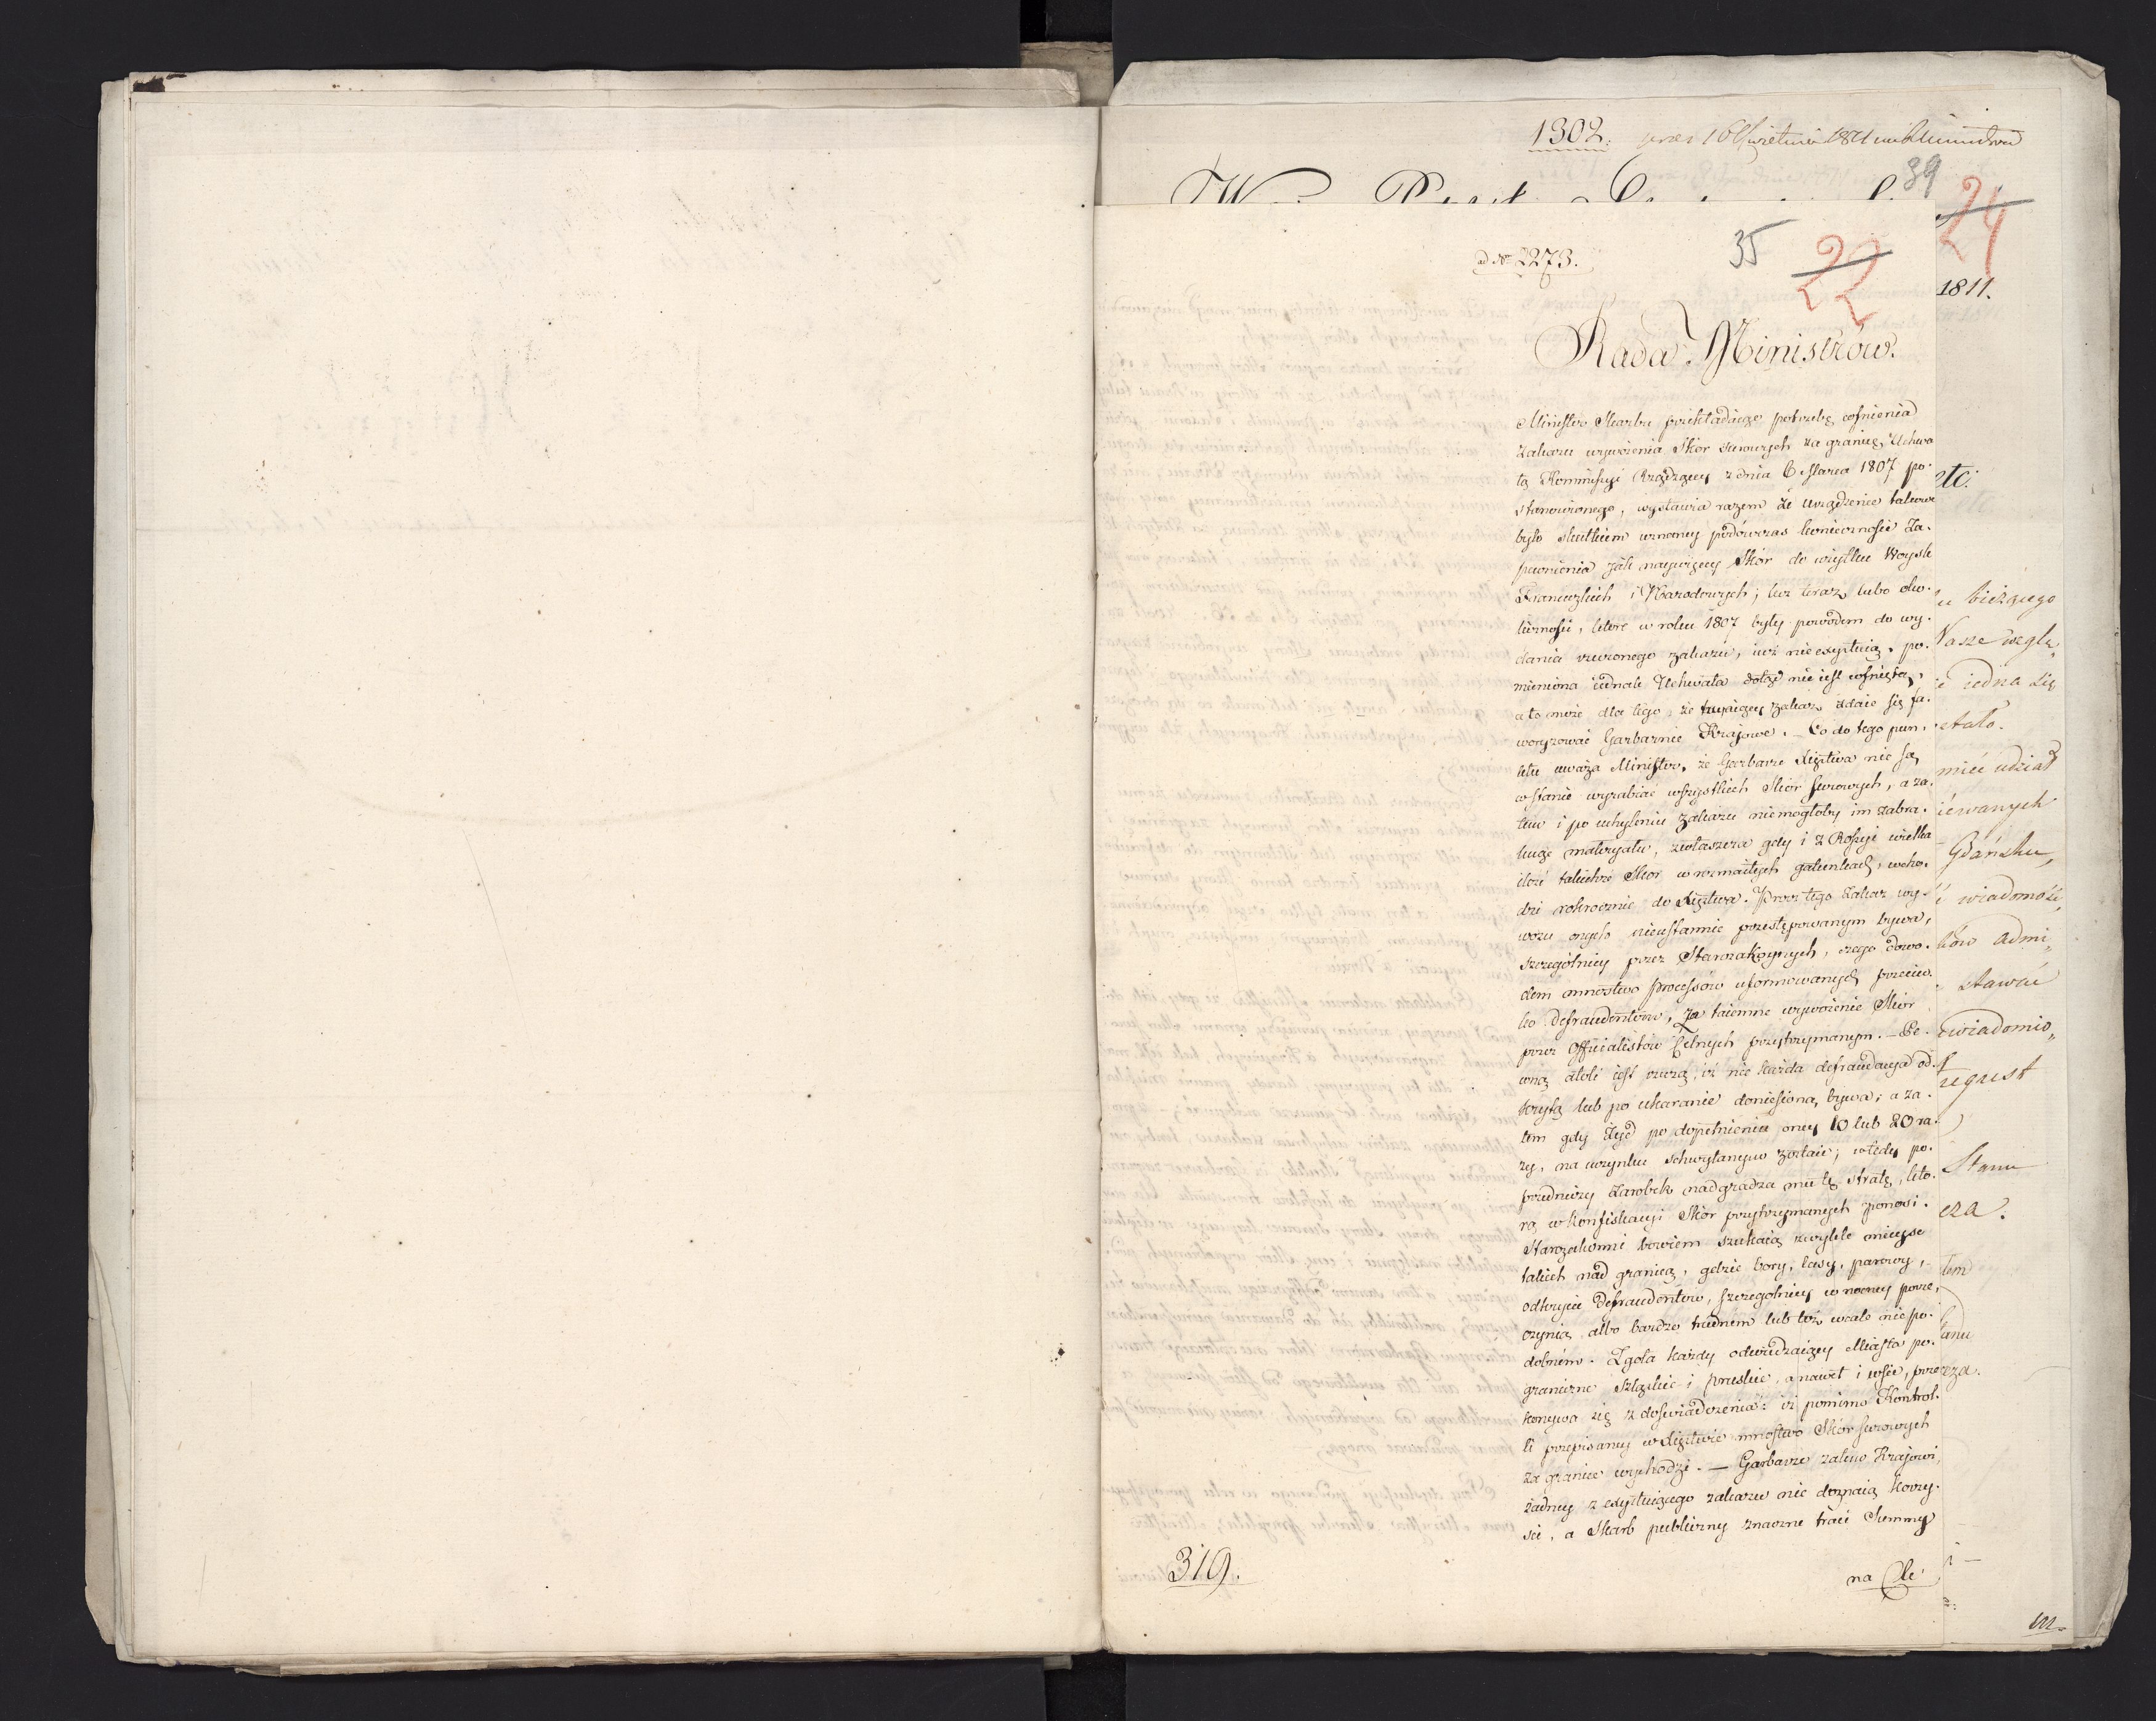 1302.
39
24
1811.
ad No 2273.
35
22
Rada Ministrów.
Minister Skarbu przekładaiąc potrzebę cofnienia
zakazu wywożenia Skór surowych za granicę, Uchwa
łą Kommissyi Rządzącey z dnia 6 Marca 1807 po-
stanowionego, wystawia razem że urządzenie takowe
było skutkiem uznaney podówczas konieczności Za-
pewnienia jak naywięcey Skór do użytku Woysk
Francuzkich i Narodowych; lecz teraz lubo oko-
liczności, które w roku 1807 były powodem do wy-
dania rzeczonego zakazu, iuż nie exystuią, po-
mieniona iednak Uchwała dotąd nie iest cofniętą,
a to może dla tego, że trwaiący zakaz zdaie się fa-
woryzować Garbarnie Krajowe. — Co do tego pun-
ktu uważa Minister, że Garbarze Xięztwa nie są
w stanie wyrabiać wszystkich Skór surowych, a za-
tem i po uchyleniu zakazu niemogłoby im zabra-
knąć materyału, zwłaszcza gdy i z Rossyi wielka
ilość takichże Skór w rozmaitych gatunkach, wcho-
dzi rokrocznie do Xięztwa. Procz tego Zakaz wy-
wozu onych nieustannie przestępowanym bywa,
szczególniey przez Starozakonnych, czego dowo-
dem mnóstwo processów uformowanych przeciw-
ko Defraudentom, za taiemne wywożenie Skór
przez Officialistów Celnych przytrzymanym. — Pe-
wną atoli iest rzeczą, iż nie każda defraudacya od-
krytą lub po ukaranie doniesioną bywa; a za-
tem gdy Żyd po dopełnieniu oney 10 lub 20 ra-
zy, na uczynku schwytanym zostaie; wtedy po-
przedniczy zarobek nadgradza mu tę stratę, któ-
rą w konfiskacyi Skór przytrzymanych ponosi.
Starozakonni bowiem szukaią zwykle mieysc
takich nad granicą, gdzie bory, lasy, parowy,
odkrycie Defraudentów, szczególniey w nocney porze,
czynią albo bardzo trudnem lub też wcale niepo-
dobném. Zgoła każdy odwiedzaiący Miasta po-
graniczne Szląskie i pruskie, a nawet i wsie, prze
konywa się z doświadczenia: iż pomimo Kontrol-
li przepisaney w Xięztwie mnóstwo Skór surowych
za granice wychodzi. — Garbarze zatem Krajowi,
żadney z exystuiącego zakazu nie doznaią korzy-
ści, a Skarb publiczny znaczne traci Summy
319.
na Cle
etc:
bieżącego
Nasze wzglę„
iedna się
stało.
mieć udział
Gdańsku,
wiadomość,
Admi„
stawić
zwiadomio„
regest
Stanu
cza.